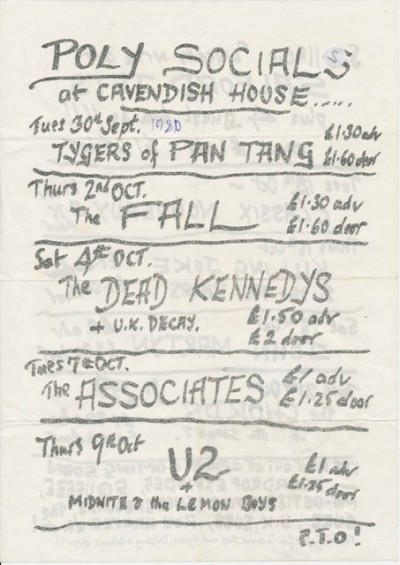 POLY SOCIALS
at CAVENDISH HOUSE.....
Tues 30th Sept. 1980 £1.30 adv
TYGERS of PAN TANG £1.60 door
Thurs 2nd OCT. £1.30 adv
The FALL £1.60 door
Sat 4th OCT.
The DEAD KENNEDYS
+ U.K. DECAY. £1.50 adv
£2 door
Tues 7th OCT. £1 adv
The ASSOCIATES £1.25 door
Thurs 9th Oct
U2 £1 adv
+ £1.25 door
MIDNITE & the LEMON BOYS
P.T.O!